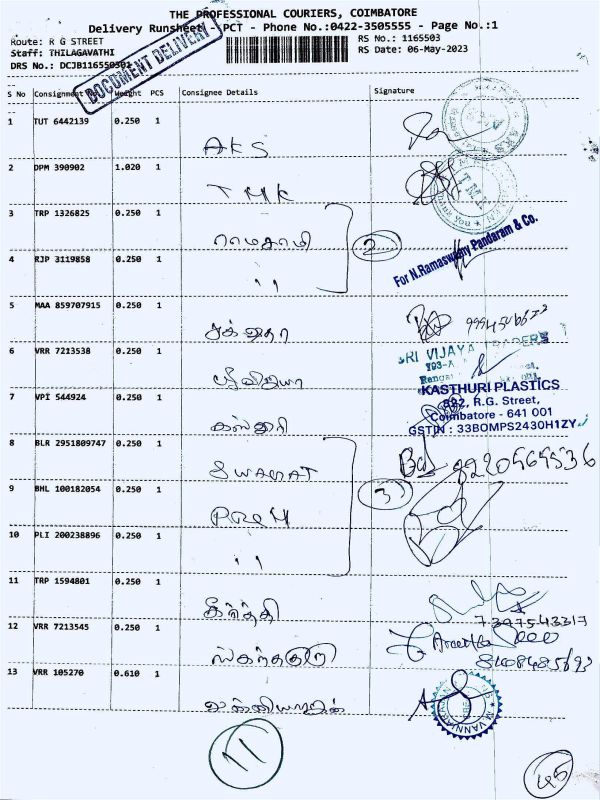 THE PROFESSIONAL COURIERS, COIMBATORE
Delivery Runsheet - PCT - Phone No.:0422-3505555 - Page No.:1
Route: R G STREET
RS No.: 1165503
Staff: THILAGAVATHI
RS Date: 06-May-2023
DRS No.: DCJB116550301
DOCUMENT DELIVERY
S No Consignment No Weight PCS Consignee Details Signature
1 TUT 6442139 0.250 1
AKS
2 DPM 390902 1.020 1
TMK
3 TRP 1326825 0.250 1
ராமசாமி
2
For N.Ramaswamy Pandaram & Co.
4 RJP 3119858 0.250 1
,,
5 MAA 859707915 0.250 1
6 VRR 7213538 0.250 1
ஸ்ரீவிஜயா
SRI VIJAYA TRADERS
7 VPI 544924 0.250 1
கஸ்தூரி
KASTHURI PLASTICS
822, R.G. Street,
Coimbatore - 641 001
GSTIN : 33BOMPS2430H1ZY
8 BLR 2951809747 0.250 1
SWAGAT
9 BHL 100182054 0.250 1
PREM
3
10 PLI 200238896 0.250 1
,,
11 TRP 1594801 0.250 1
கீர்த்தி
7397543317
12 VRR 7213545 0.250 1
13 VRR 105270 0.610 1
11
45